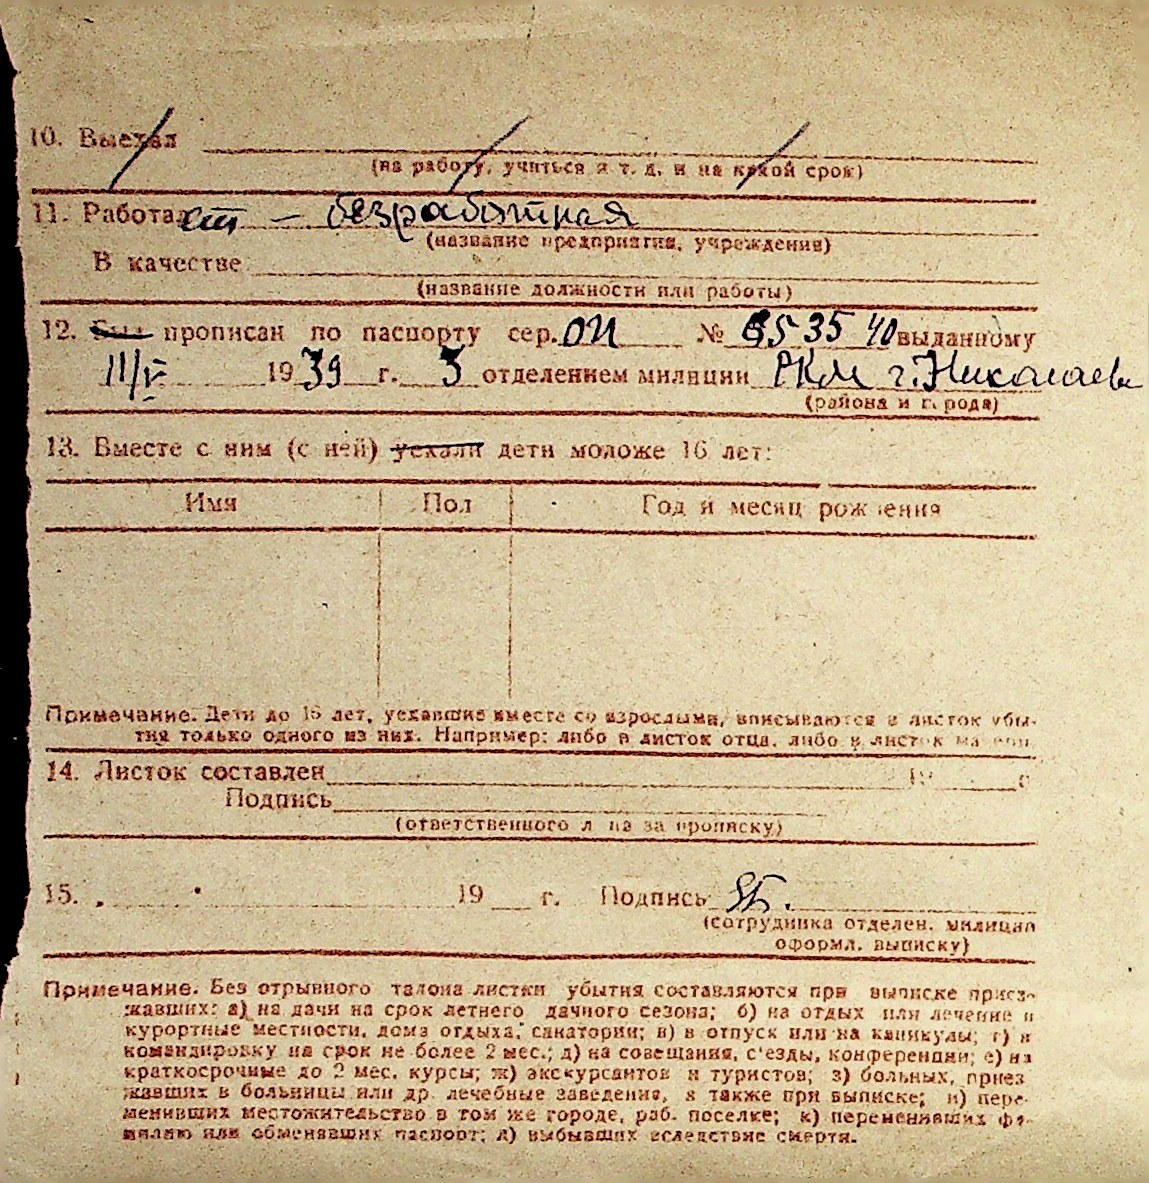 10. Выехал
(на работу, учиться и т. д. и на какой срок)
11. Работает — безработная
(название предприятия, учреждения)
В качестве
(название должности или работы)
12. Был прописан по паспорту сер. ОИ № 653540 выданному
III/V 1939 г. 3 отделением милиции РКМ г. Николаева
(района и города)
13. Вместе с ним (с ней) уехали дети моложе 16 лет:
Имя Пол Год и месяц рождения
Примечание. Дети до 16 лет, уехавшие вместе со взрослыми, вписываются в листок убы-
тия только одного из них. Например: либо в листок отца, либо в листок
14. Листок составлен 19 г
Подпись
(ответственного лица за прописку)
15. 19 г. Подпись
(сотрудника отделен. милиции
оформл. выписку)
Примечание. Без отрывного талона листки убытия составляются при выписке приез-
жавших: а) на дачи на срок летнего дачного сезона; б) на отдых или лечение в
курортные местности, дома отдыха, санатории; в) в отпуск или на каникулы; г) в
командировку на срок не более 2 мес.; д) на совещания, с'езды, конференции; е) на
краткосрочные до 2 мес. курсы; ж) экскурсантов и туристов; з) больных, приез
жавших в больницы или др. лечебные заведения, а также при выписке; и) пере-
менивших местожительство в том же городе, раб. поселке; к) переменивших фа-
милию или обменявших паспорт; л) выбывших вследствие смерти.